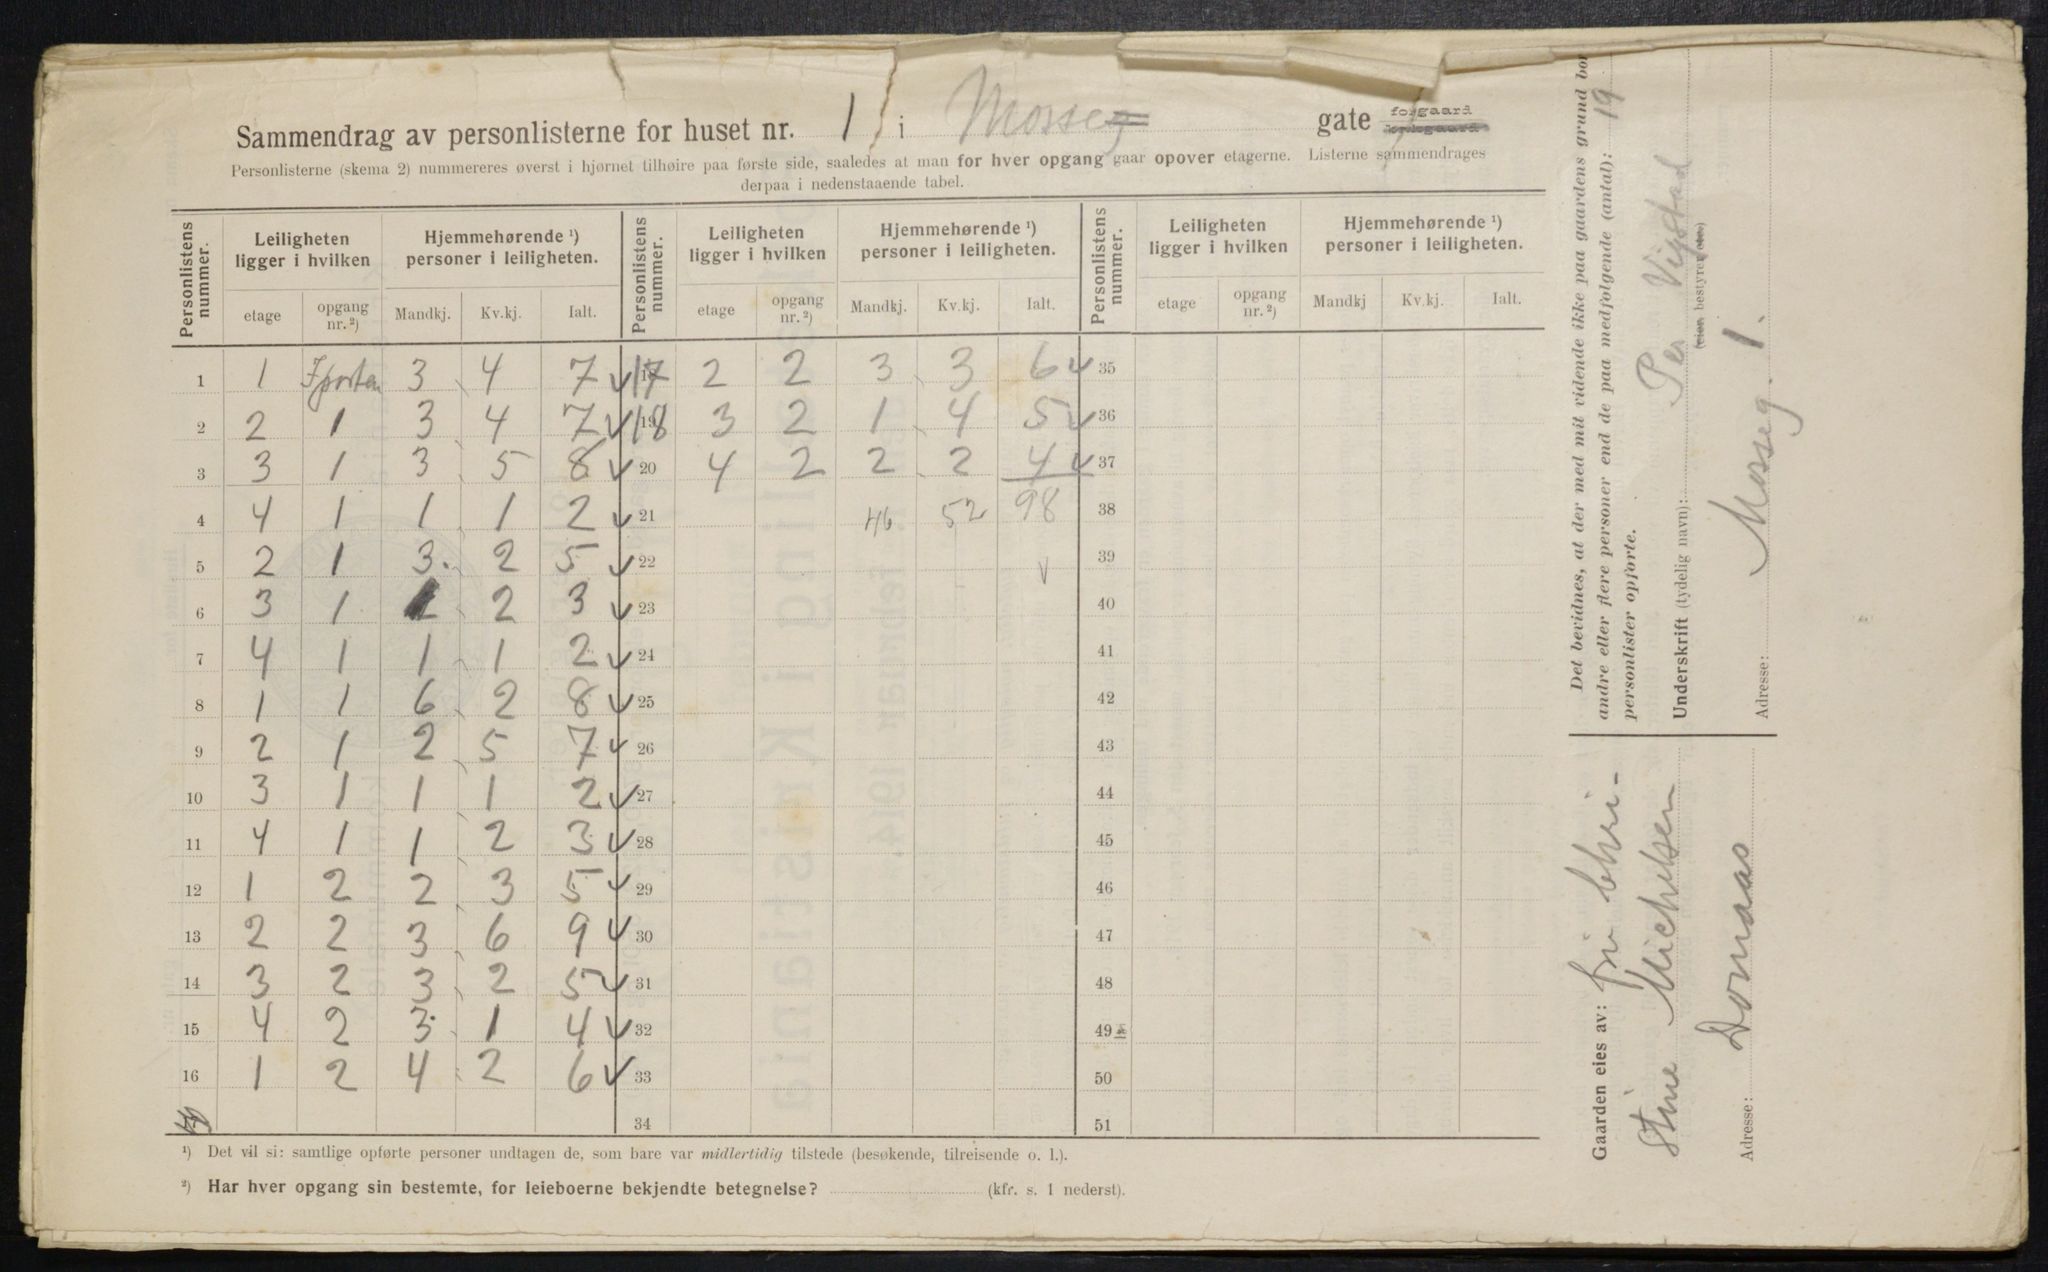 Sammendrag av personlisterne for huset nr. 1 i Mosseg gate forgaard
Personlisterne (skema 2) nummereres øverst i hjørnet tilhøire paa første side, saaledes at man for hver opgang gaar opover etagerne. Listerne sammendrages
derpaa i nedenstaaende tabel.
Personlistens nummer. Leiligheten ligger i hvilken Hjemmehørende ¹) personer i leiligheten. Personlistens nummer. Leiligheten ligger i hvilken Hjemmehørende ¹) personer i leiligheten. Personlistens nummer. Leiligheten ligger i hvilken Hjemmehørende ¹) personer i leiligheten.
etage opgang nr. ²) Mandkj. Kv.kj. Ialt. etage opgang nr. ²) Mandkj. Kv.kj. Ialt. etage opgang nr. ²) Mandkj Kv.kj. Ialt.
1 1 Iporten 3 4 7 17 2 2 3 3 6 35
2 2 1 3 4 7 19 18 3 2 1 4 5 36
3 3 1 3 5 8 20 4 2 2 2 4 37
4 4 1 1 1 2 21 46 52 98 38
5 2 1 3 2 5 22 39
6 3 1 1 2 3 23 40
7 4 1 1 1 2 24 41
8 1 1 6 2 8 25 42
9 2 1 2 5 7 26 43
10 3 1 1 1 2 27 44
11 4 1 1 2 3 28 45
12 1 2 2 3 5 29 46
13 2 2 3 6 9 30 47
14 3 2 3 2 5 31 48
15 4 2 3 1 4 32 49
16 1 2 4 2 6 33 50
34 51
¹) Det vil si: samtlige opførte personer undtagen de, som bare var midlertidig tilstede (besøkende, tilreisende o. l.).
²) Har hver opgang sin bestemte, for leieboerne bekjendte betegnelse? (kfr. s. 1 nederst).
Det bevidnes, at der med mit vidende ikke paa gaardens grund bor
andre eller flere personer end de paa medfølgende (antal): 19
personlister opførte.
Underskrift (tydelig navn): Per Vigstad
(eier bestyrer
Adresse: Mosseg. 1.
Gaarden eies av: fru Chri-
stine Michelsen
Adresse: Domaas